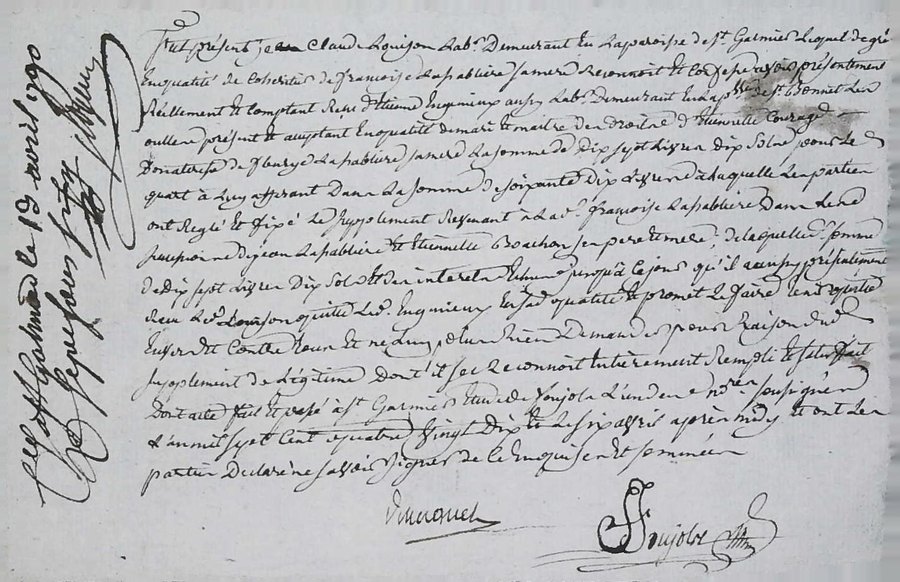 fut présent jean Claude Louison Labr. Demeurant en la paroisse de st. Garmier Lequel de gré
En qualité de Coheritier de francoise La sabliere sa mere Reconnoit Et Confesse avoir présentement
Réellement Et Comptant Reçu d'Etienne Engenieux aussy Labr. Demeurant En la psse. de st. Bonnet Les
oulles présent Et acceptant En qualité de mari Et maitre des droits d'Etiennette Courage
Donataire de fleurye La sabliere sa mere La somme de Dix sept Livres Dix Sols pour Le
quart à Luy afferant Dans La somme de soixante Dix Livres à laquelle Les parties
ont Reglé Et fixé Le supplement Revenant à lad. francoise La sabliere Dans Les
successions de jean La sabliere Et Etiennette Bouchon ses pere Et mere, de laquelle somme
de Dix sept Livres Dix Sols Et des interets Echus jusqu'à Ce jour qu'il a aussy présentement
Reçu Led. Louison quitte Led. Engenieux En sad. qualité Et promet Le faire tenir quitte
Envers Et Contre tous Et ne Luy plus Rien Demander pour Raison dud.
supplement de Légitime Dont il se Reconnoit Entierement Rempli Et satisfait
Dont acte fait Et passé à st. Garmier Etude de Soujole L'un des nores. soussignés
L'an mil sept Cent quatre Vingt Dix Et Le six avril après midy Et ont Les
parties Declaré ne savoir signer de Ce Enquises Et sommées
Soujole
Reçu
st Galmier le 19 avril 1790